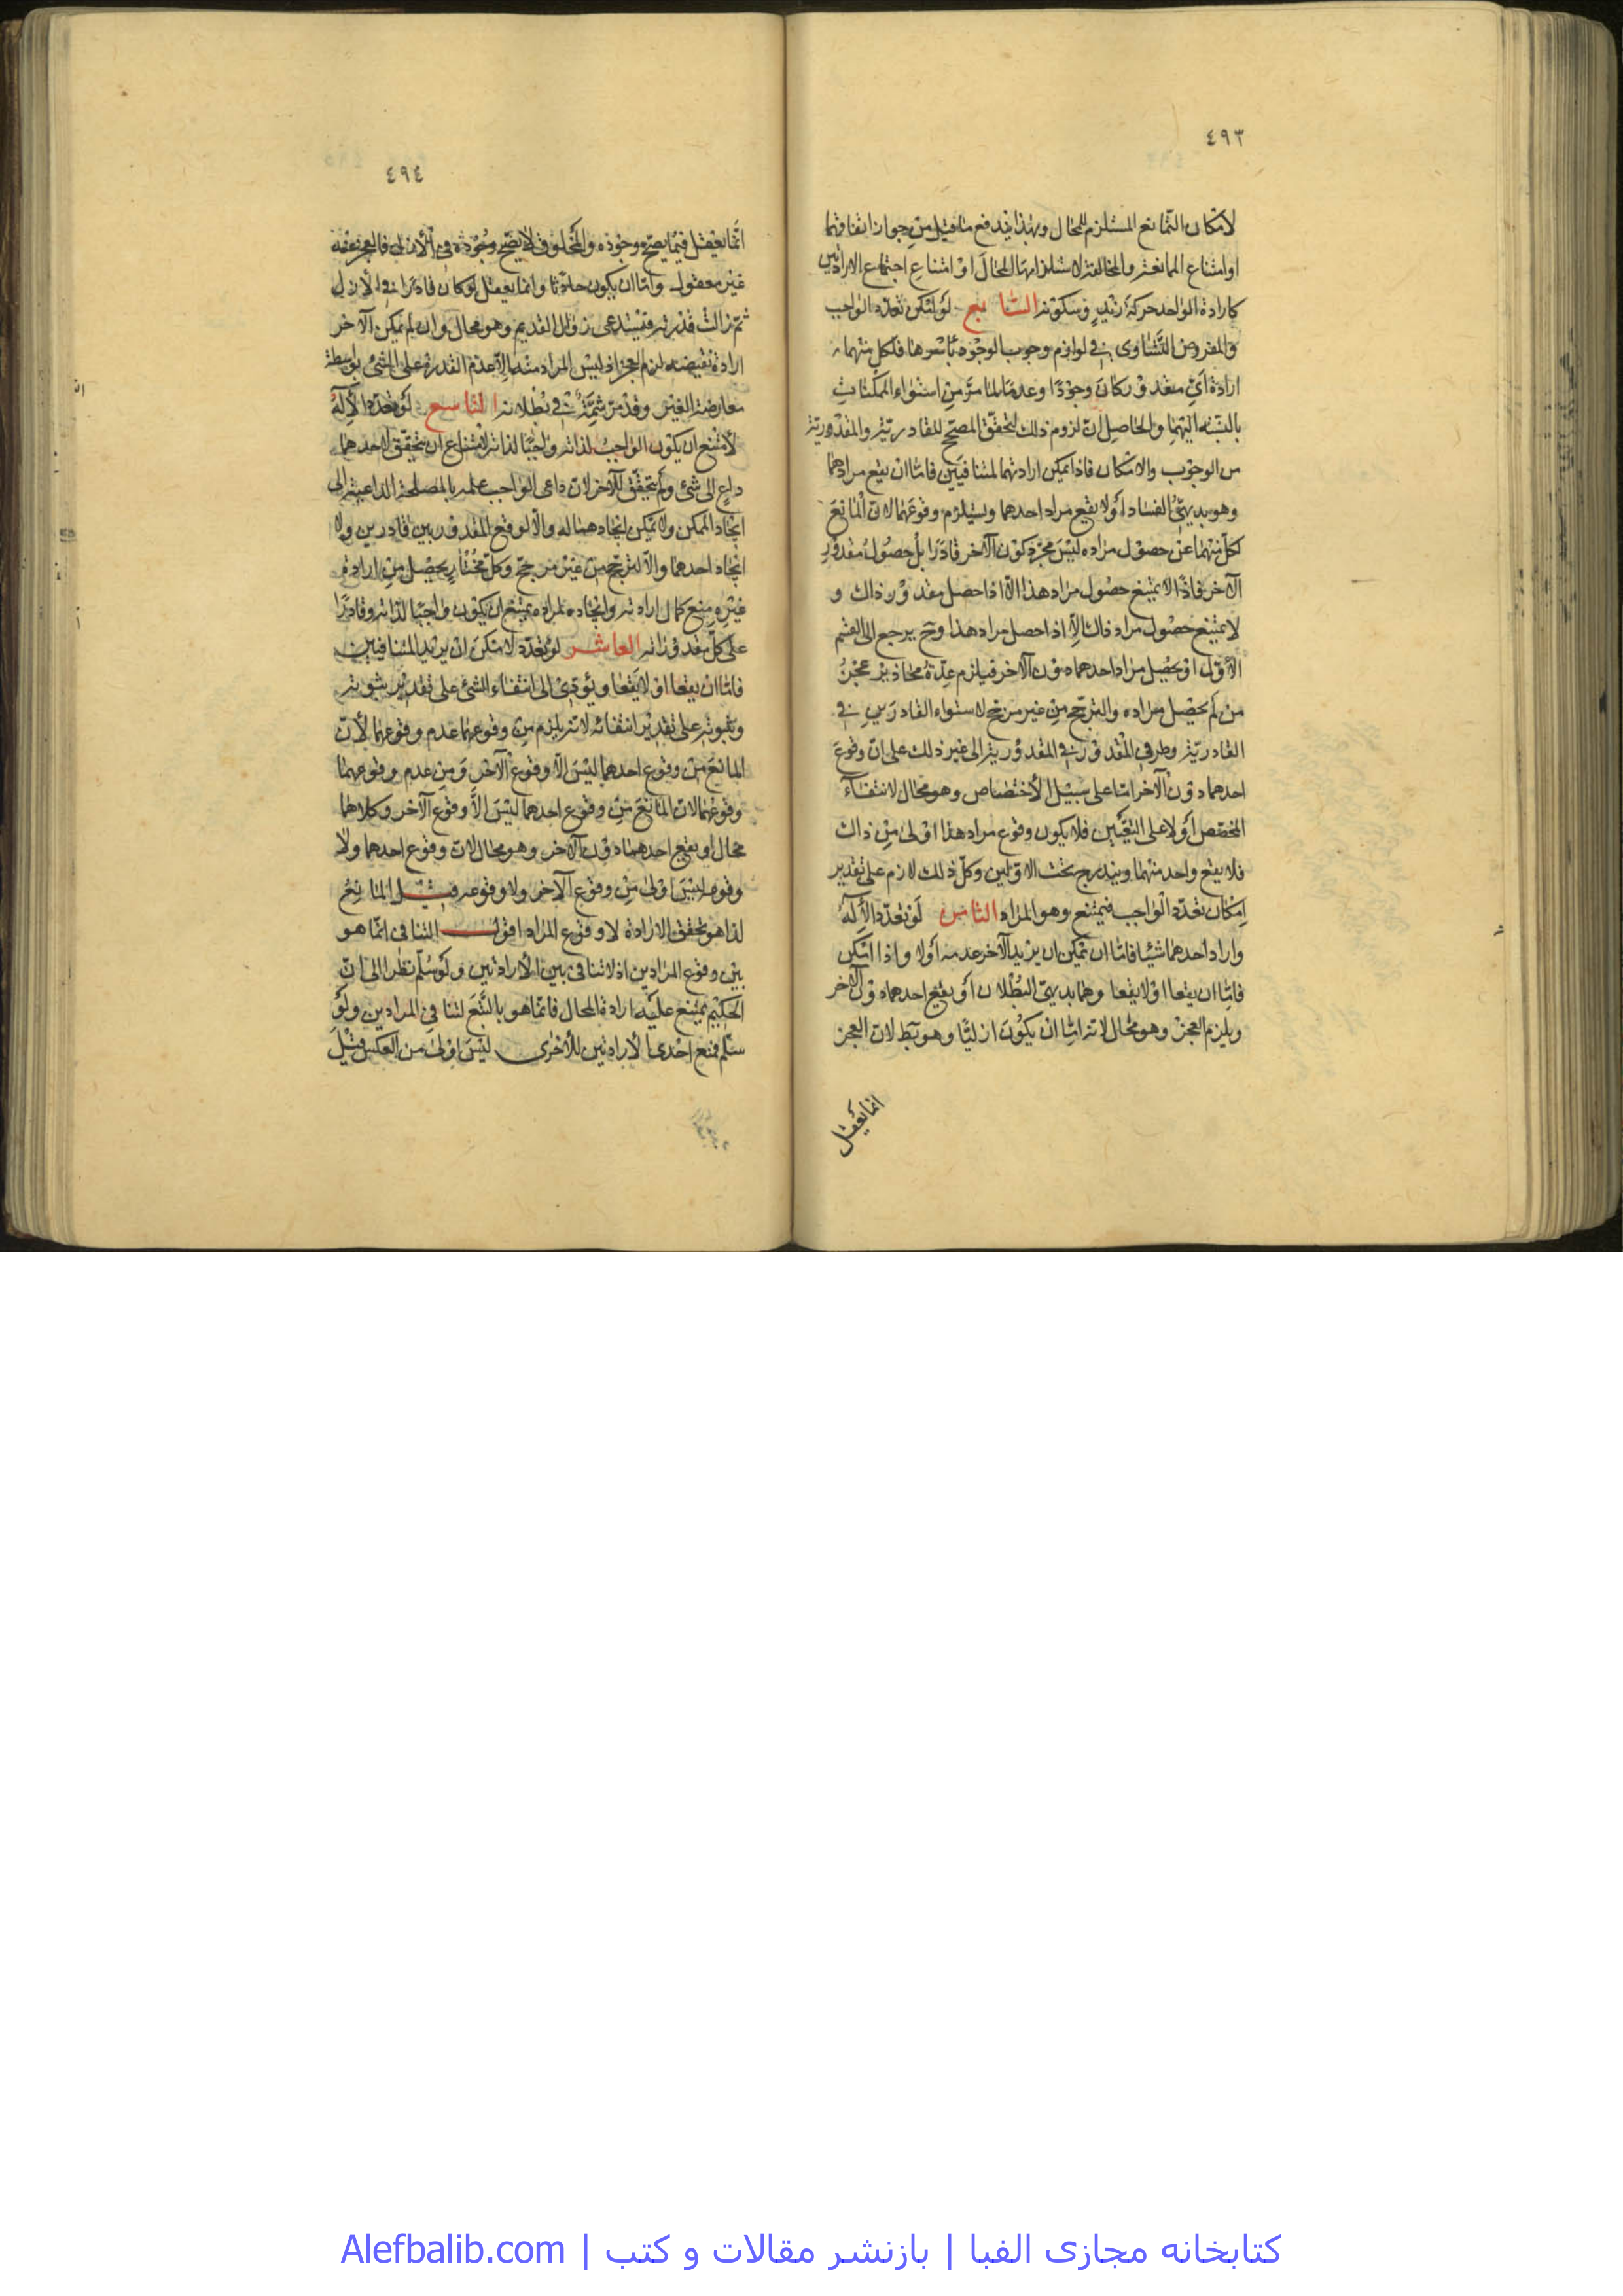 ٤٩٣
لامكان التمانع المستلزم للمحال وبهذا يندفع ما قيل من جواز اتفاقهما
او امتناع الممانعة والمخالفة لاستلزامها المحال او امتناع اجتماع الارادتين
كارادة الواحد حركة زيد وسكونه السابع لو امكن تعدد الواجب
والمفروض التساوى فى لوازم وجوب الوجود باسرها فلكل منهما
ارادة اى مقدور كان وجودا وعدما لما مر من استواء الممكنات
بالنسبة اليهما والحاصل ان لزوم ذلك لتحقق المصحح للقادرية والمقدورية
من الوجوب والامكان فاذا يمكن ارادتهما لمتنافيين فاما ان يقع مرادهما
وهو بديهى الفساد او لا يقع مراد احدهما ويستلزم وقوعهما لان المانع
لكل منهما عن حصول مراده ليس مجرد كون الآخر قادرا بل حصول مقدور
الآخر فاذا لا يمتنع حصول مراد هذا الا اذا حصل مقدور ذاك و
لا يمتنع حصول مراد ذاك الا اذا حصل مراد هذا وح يرجع الى القسم
الاول او يحصل مراد احدهما دون الآخر فيلزم عدة محاذير عجز
من لم يحصل مراده والترجح من غير مرجح لاستواء القادرين فى
القادرية وطرفى المقدور فى المقدورية الى غير ذلك على ان وقوع
احدهما دون الآخر اما على سبيل الاختصاص وهو محال لانتفاء
المخصص او لا على التعيين فلا يكون وقوع مراد هذا اولى من ذاك
فلا يقع واحد منهما ويندرج تحت الاولين وكل ذلك لازم على تقدير
امكان تعدد الواجب فيمتنع وهو المراد الثامن لو تعدد الاله
واراد احدهما شيئا فاما ان يمكن ان يريد الآخر عدمه او لا واذا امكن
فاما ان يقعا او لا يقعا وهما بديهى البطلان او يقع احدهما دون الآخر
ويلزم العجز وهو محال لانه اما ان يكون ازليا وهو بط لان العجز
انما يعقل
٤٩٤
انما يعقل فيما يصح وجوده والمخلوق لا يصح وجوده فى الازل فالعجز عنه
غير معقول واما ان يكون حادثا وانما يعقل لو كان قادرا فى الازل
ثم زالت قدرته فيستدعى زوال القديم وهو محال وان لم يمكن الآخر
ارادة نقيضه لزم العجز اذ ليس المراد منه الا عدم القدرة على الشئ بواسطة
معارضة الغير وقد مر فى بطلانه التاسع لو تعدد الاله
لامتنع ان يكون الواجب لذاته واجبا لذاته لامتناع ان يتحقق لاحدهما
داع الى شئ ولم يتحقق للآخر لان داعى الواجب علمه بالمصلحة الداعية الى
ايجاد الممكن ولا يمكن ايجادهما له والا لوقع المقدور بين قادرين ولا
ايجاد احدهما والا لترجح من غير مرجح وكل مختار يحصل من ارادة
غيره منع كمال ارادته وايجاده لمراده يمتنع ان يكون واجبا لذاته وقادرا
على كل مقدور لذاته العاشر لو تعدد لامكن ان يريد المتنافيين
فاما ان يقعا او لا يقعا ويؤدى الى انتفاء الشئ على تقدير ثبوته
وثبوته على تقدير انتفائه لانه يلزم من وقوعهما عدم وقوعهما لان
المانع من وقوع احدهما ليس الا وقوع الآخر ومن عدم وقوعهما
وقوعهما لان المانع من وقوع احدهما ليس الا وقوع الآخر وكلاهما
محال او يقع احدهما دون الآخر وهو محال لان وقوع احدهما ولا
وقوعه ليس اولى من وقوع الآخر ولا وقوعه قيل المانع
لذا هو تحقق الارادة لا وقوع المراد اقول التنافى انما هو
بين وقوع المرادين اذ لا تنافى بين الارادتين ولو سلم نظرا الى ان
الحكيم يمتنع عليه ارادة المحال فانما هو بالتبع لتنافى المرادين ولو
سلم فمنع احدى الارادتين للاخرى ليس اولى من العكس قيل
کتابخانه مجازی الفبا | بازنشر مقالات و کتب | Alefbalib.com